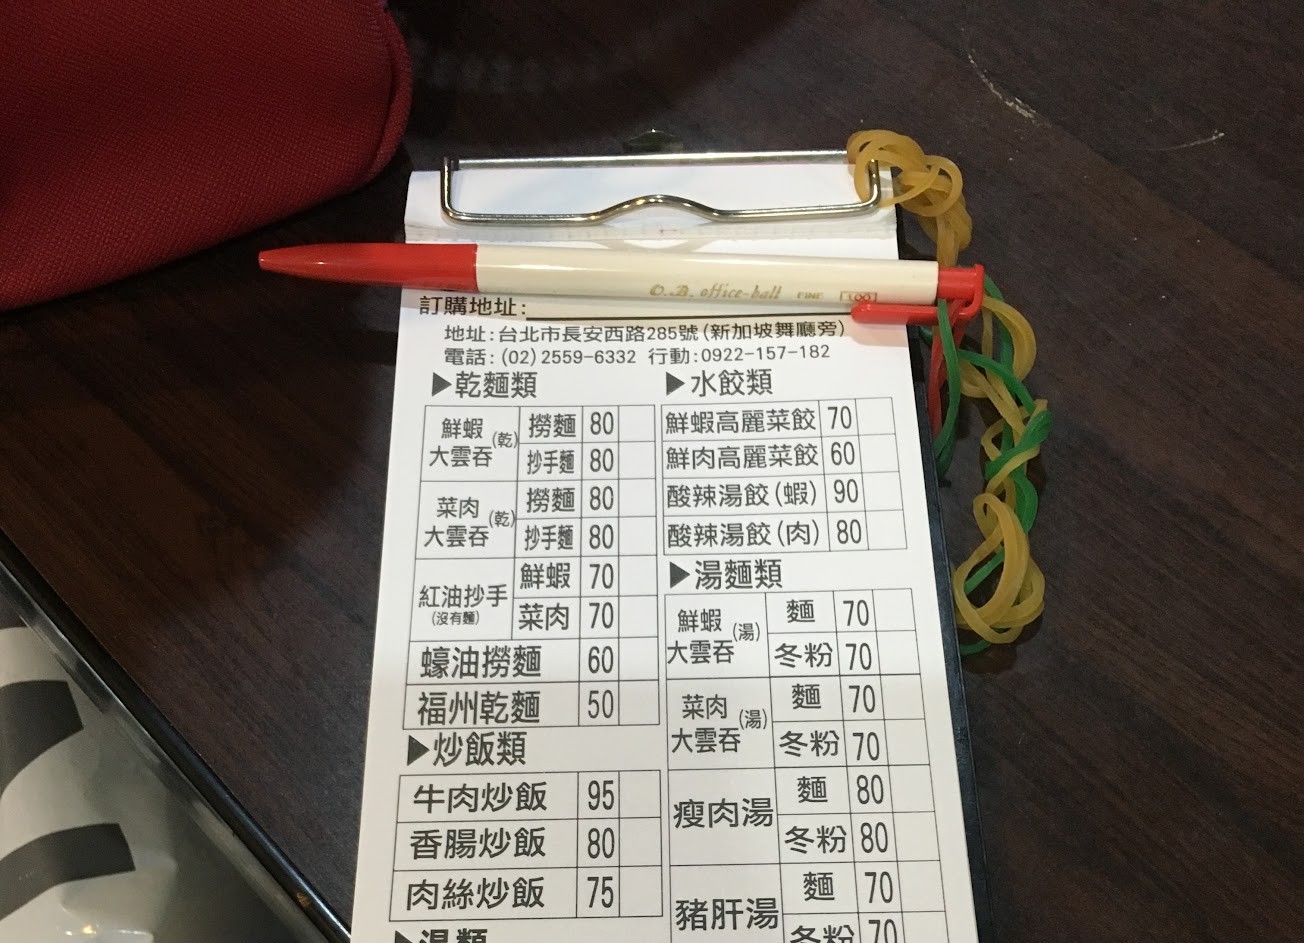 O.B. office-ball FINE 100
訂購地址:
地址:台北市長安西路285號(新加坡舞廳旁)
電話:(02)2559-6332 行動:0922-157-182
▶乾麵類
鮮蝦大雲吞(乾) 撈麵 80
抄手麵 80
菜肉大雲吞(乾) 撈麵 80
抄手麵 80
紅油抄手(沒有麵) 鮮蝦 70
菜肉 70
蠔油撈麵 60
福州乾麵 50
▶炒飯類
牛肉炒飯 95
香腸炒飯 80
肉絲炒飯 75
▶湯類
▶水餃類
鮮蝦高麗菜餃 70
鮮肉高麗菜餃 60
酸辣湯餃(蝦) 90
酸辣湯餃(肉) 80
▶湯麵類
鮮蝦大雲吞(湯) 麵 70
冬粉 70
菜肉大雲吞(湯) 麵 70
冬粉 70
瘦肉湯 麵 80
冬粉 80
豬肝湯 麵 70
冬粉 70